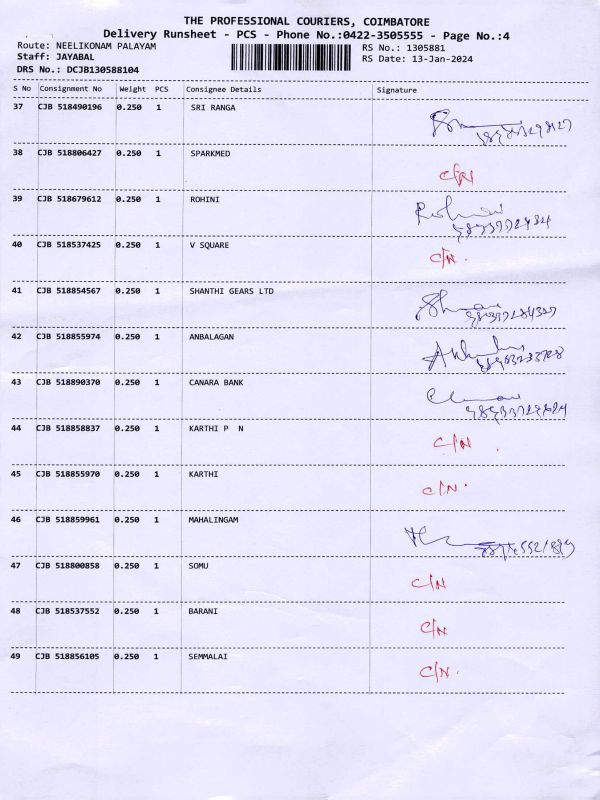 THE PROFESSIONAL COURIERS, COIMBATORE
Delivery Runsheet - PCS - Phone No.:0422-3505555 - Page No.:4
Route: NEELIKONAM PALAYAM RS No.: 1305881
Staff: JAYABAL RS Date: 13-Jan-2024
DRS No.: DCJB130588104
S No Consignment No Weight PCS Consignee Details Signature
37 CJB 518490196 0.250 1 SRI RANGA
38 CJB 518806427 0.250 1 SPARKMED C/N
39 CJB 518679612 0.250 1 ROHINI
40 CJB 518537425 0.250 1 V SQUARE C/N.
41 CJB 518854567 0.250 1 SHANTHI GEARS LTD
42 CJB 518855974 0.250 1 ANBALAGAN
43 CJB 518890370 0.250 1 CANARA BANK
44 CJB 518858837 0.250 1 KARTHI P N C/N.
45 CJB 518855970 0.250 1 KARTHI C/N.
46 CJB 518859961 0.250 1 MAHALINGAM
47 CJB 518800858 0.250 1 SOMU C/N
48 CJB 518537552 0.250 1 BARANI C/N
49 CJB 518856105 0.250 1 SEMMALAI C/N.